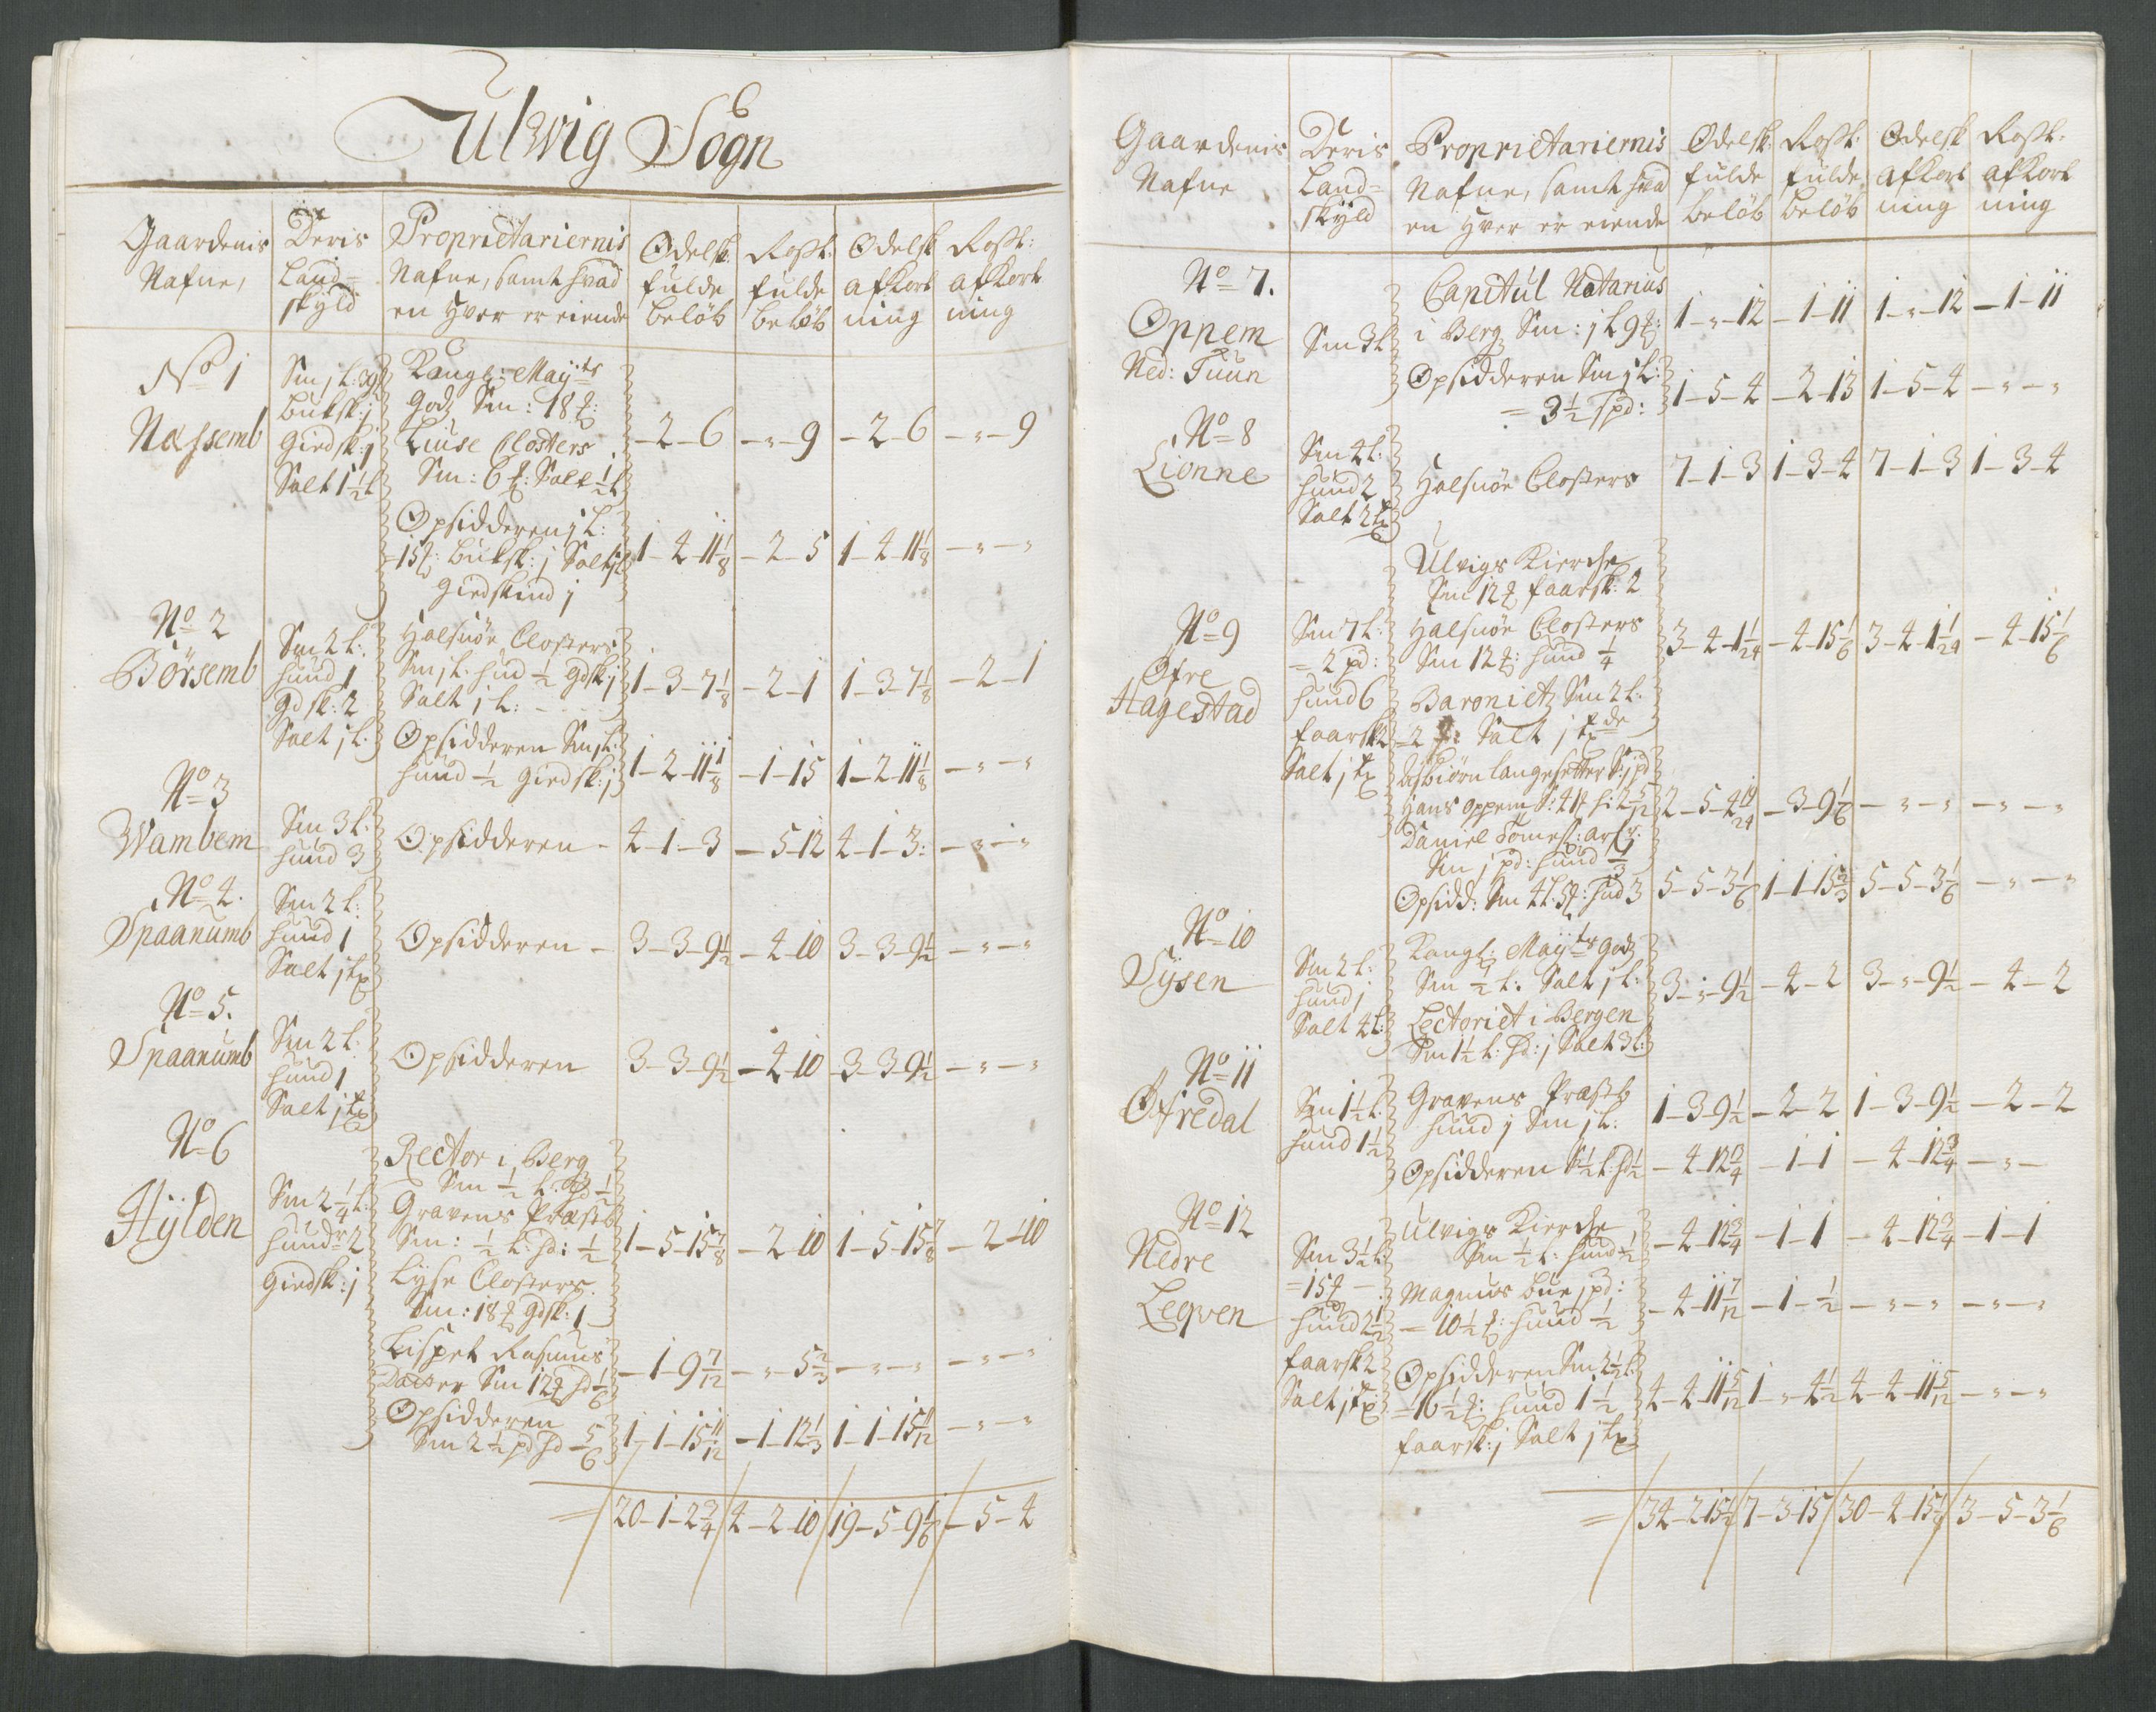 Ulwig Sogn
Gaardenis Nafne,
Deris Land= skÿld
Proprietariernis Nafne, samt hvad en hver er eiende
Odelsk: fulde beløb
Rosst: fulde beløb
Odelsk afkort ning
Rosst: afkort ning
No 1
Næssemb
Sm j L:
Buksk: j
Giedsk: j
Salt 1½ L
Kongl: Maÿts
Godz Sm: 18 ℔:
Liuse Closters
Sm: 6 ℔: Salt ½ L
-2-6 -"-9 -2-6 -"-9
Opsidderen j L:
=15 ℔: Buksk: j Salt j L
Giedskind j
1-4-11⅛ -2-5 1-4-11⅛ -"-"
No 2
Børsemb
Sm 2 L:
hund 1
gdsk: 2
Salt j L:
Halsnöe Closters
Sm j L: hud ½ gdsk: j
Salt j L:
1-3-7⅛ -2-1 1-3-7⅛ -2-1
Opsidderen Sm j L:
hund ½ giedsk: j
1-2-11⅛ -1-15 1-2-11⅛ -"-"
No 3
Wambem
Sm 3 L:
hund 3
Opsidderen -
4-1-3 -5-12 4-1-3: -"-"
No 4.
Spaanumb
Sm 2 L:
hund 1
Salt j tp
Opsidderen -
3-3-9½ -4-10 3-3-9½ -"-"
No 5.
Spaanumb
Sm 2 L:
hund 1
Salt j tp
Opsidderen
3-3-9½ -4-10 3-3-9½ -"-"
No 6
Hÿlden
Sm 2¼ L:
hundr 2
Giedsk: j
Rector i Berg
Sm ½ L: hd ½
Gravens Præstb
Sm: ½ L: hd: ½
Lÿse Closters
Sm: 18 ℔ gdsk: 1
1-5-15⅞ -2-10 1-5-15⅞ -2-10
Lispet Rasmus
Daatter Sm 12 ℔ hd ⅙
-1-9 7/12 -"-5⅔ -"-" -"-"
Opsidderen
Sm 2½ pd hd ⅚
1-1-15 11/12 -1-12⅓ 1-1-15 11/12 -"-"
=/20-1-2¾/4-2-10/19-5-9⅙/-5-4
Gaardenis Nafne
Deris Land= skÿld
Proprietariernis Nafne, samt hvad en hver er eiende
Odelsk: fulde beløb
Rosst: fulde beløb
Odelsk afkort ning
Rosst: afkort ning
No 7.
Oppem
Ned: Tuun
Sm 3 L
Capitul Notarius
i Berg Sm: j L 9 ℔:
1-"-12 -1-11 1-"-12 -1-11
Opsidderen Sm j L:
= 3½ spd:
1-5-4 -2-13 1-5-4 -"-"
No 8
Lionne
Sm 4 L:
hund 2
Salt 2 tp
Halsnöe Closters
7-1-3 1-3-4 7-1-3 1-3-4
No 9
Øfre
Hagestad
Sm 7 L:
=2 pd:
hund 6
faarsk 2
Salt j tp
Ulvigs Kierche
Sm 12 ℔ faarsk: 2
Halsnöe Closters
Sm 12 ℔: hund ¼
Baroniet Sm 2 L:
=2 ℔: Salt j tp
3-4-1 1/24 -4-15⅙ 3-4-1 1/24 -4-15⅙
Asbiörn Langesetter S: j pd
Hans Oppem S: 4 ℔ h: 2 5/12
Daniel
Sm j pd: hund ⅓
2-5-4 19/24 -3-9⅙ -"-" -"-"
Opsidd: Sm 4 L: 5 ℔: hud 3
5-5-3⅙ 1-1-15⅔ 5-5-3⅙ -"-"
No 10
Sÿsen
Sm 2 L:
hund j
Salt 4 L:
Kongl: Maÿts godz
Sm ½ L: Salt j L:
Lectoriet i Bergen
Sm 1½ L: hd: j Salt 3 L:
3-"-9½ -4-2 3-"-9½ -4-2
No 11
Øfredal
Sm 1½ L:
hund 1½
Gravens Præstb
hund j Sm j L:
1-3-9½ -2-2 1-3-9½ -2-2
Opsidderen S ½ L: hd ½
-4-12¾ -1-1 -4-12¾ -"-
No 12
Nedre
Leqven
Sm 3½ L:
=15 ℔ -
hund 2½
faarsk 2
Salt j tp
Ulvigs Kierche
Sm ½ L: hund ½
-4-12¾ -1-1 -4-12¾ -1-1
Magnus Bue j pd:
=10½ ℔: hund ½
-4-11 7/12 -1-½ -"-" -"-"
Opsidderen Sm 2½ L
=16½ ℔: hund 1½
faarsk: j Salt j tp
4-4-11 5/12 1-"-4½ 4-4-11 5/12 -"-"
=/34-2-15½/7-3-15/30-4-15⅛/3-5-3⅙